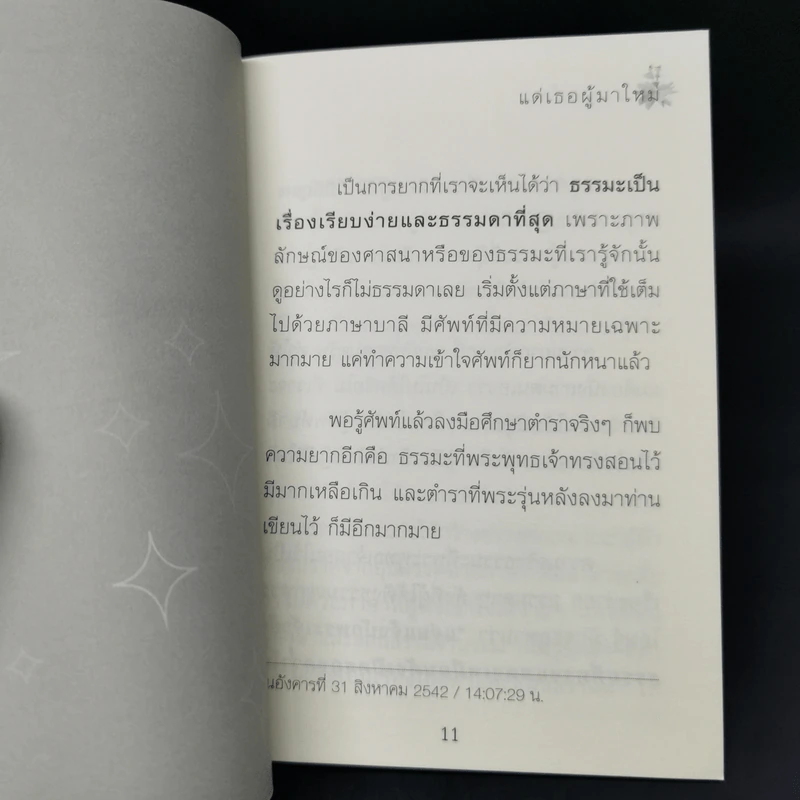 แด่เธอผู้มาใหม่
เป็นการยากที่เราจะเห็นได้ว่า ธรรมะเป็น
เรื่องเรียบง่ายและธรรมดาที่สุด เพราะภาพ
ลักษณ์ของศาสนาหรือของธรรมะที่เรารู้จักนั้น
ดูอย่างไรก็ไม่ธรรมดาเลย เริ่มตั้งแต่ภาษาที่ใช้เต็ม
ไปด้วยภาษาบาลี มีศัพท์ที่มีความหมายเฉพาะ
มากมาย แค่ทำความเข้าใจศัพท์ก็ยากนักหนาแล้ว
พอรู้ศัพท์แล้วลงมือศึกษาตำราจริงๆ ก็พบ
ความยากอีกคือ ธรรมะที่พระพุทธเจ้าทรงสอนไว้
มีมากเหลือเกิน และตำราที่พระรุ่นหลังลงมาท่าน
เขียนไว้ ก็มีอีกมากมาย
นอังคารที่ 31 สิงหาคม 2542 / 14:07:29 น.
11